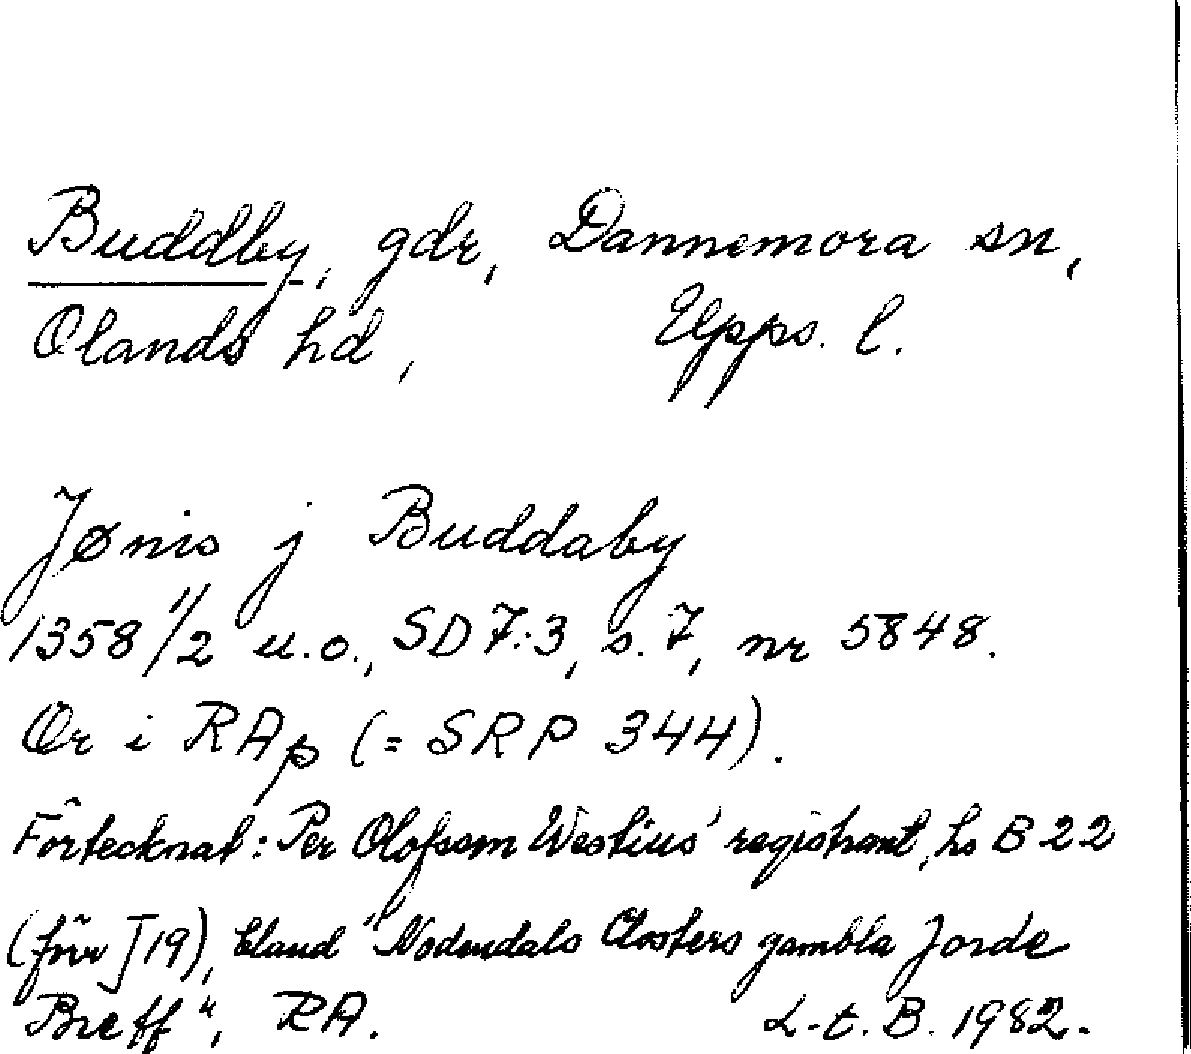 Buddby, gdr, Dannemora sn,
Olands hd, Upps. l.
Jønis j Buddaby
1358 1/2 u.o., SD 7:3, s. 7, nr 5848.
Or i RAp (= SRP 344).
Förtecknat: Per Olofsson Westius' registrant, hs B 22
(förr J 19), bland "Nodendals Closters gambla Jorde
Breff", RA. L-t. B. 1982.